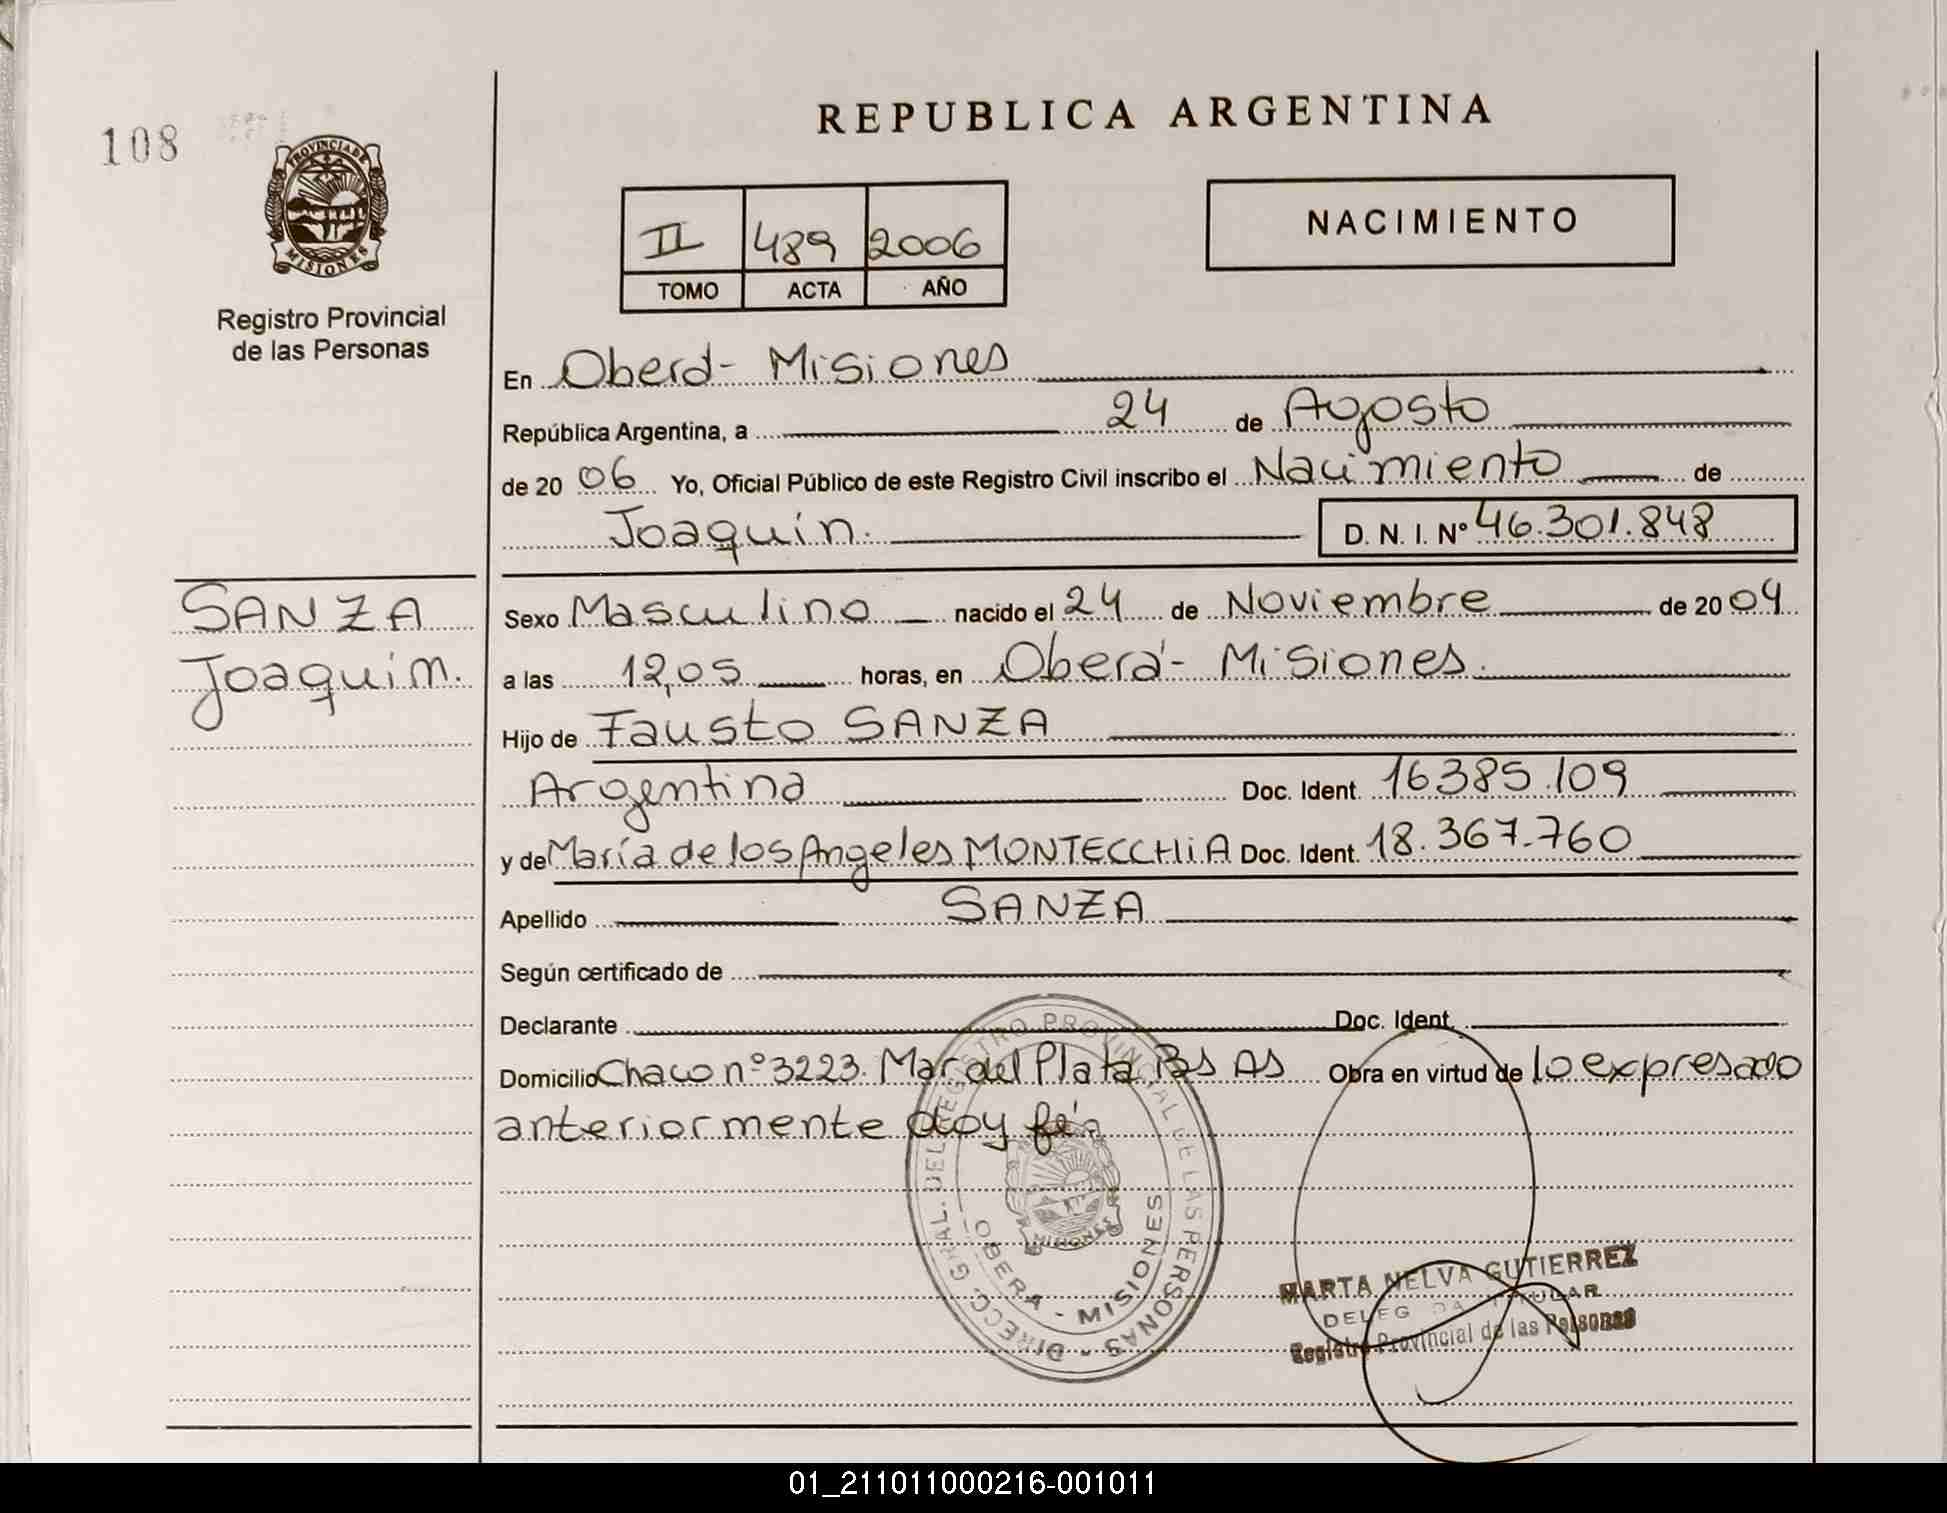 108
PROVINCIA DE
MISIONES
Registro Provincial
de las Personas
REPUBLICA ARGENTINA
II 489 2006
TOMO ACTA AÑO
NACIMIENTO
En Oberá - Misiones
República Argentina, a 24 de Agosto
de 2006 Yo, Oficial Público de este Registro Civil inscribo el Nacimiento de
Joaquín. D. N. I. Nº 46.301.848
SANZA
Joaquim.
Sexo Masculino nacido el 24 de Noviembre de 2004
a las 12,05 horas, en Oberá - Misiones.
Hijo de Fausto SANZA
Argentina Doc. Ident. 16385.109
y de María de los Angeles MONTECCHiA Doc. Ident. 18.367.760
Apellido SANZA
Según certificado de
Declarante Doc. Ident.
Domicilio Chaco nº 3223. Mar del Plata, Bs As Obra en virtud de lo expresado
anteriormente doy fé.
DIRECC. GRAL. DEL REGISTRO PROVINCIAL DE LAS PERSONAS -
MISIONES
OBERA - MISIONES
MARTA NELVA GUTIERREZ
DELEGADA TITULAR
Registro Provincial de las Personas
01_211011000216-001011